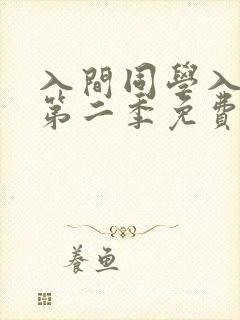 入間同學入
第二季免費
養魚